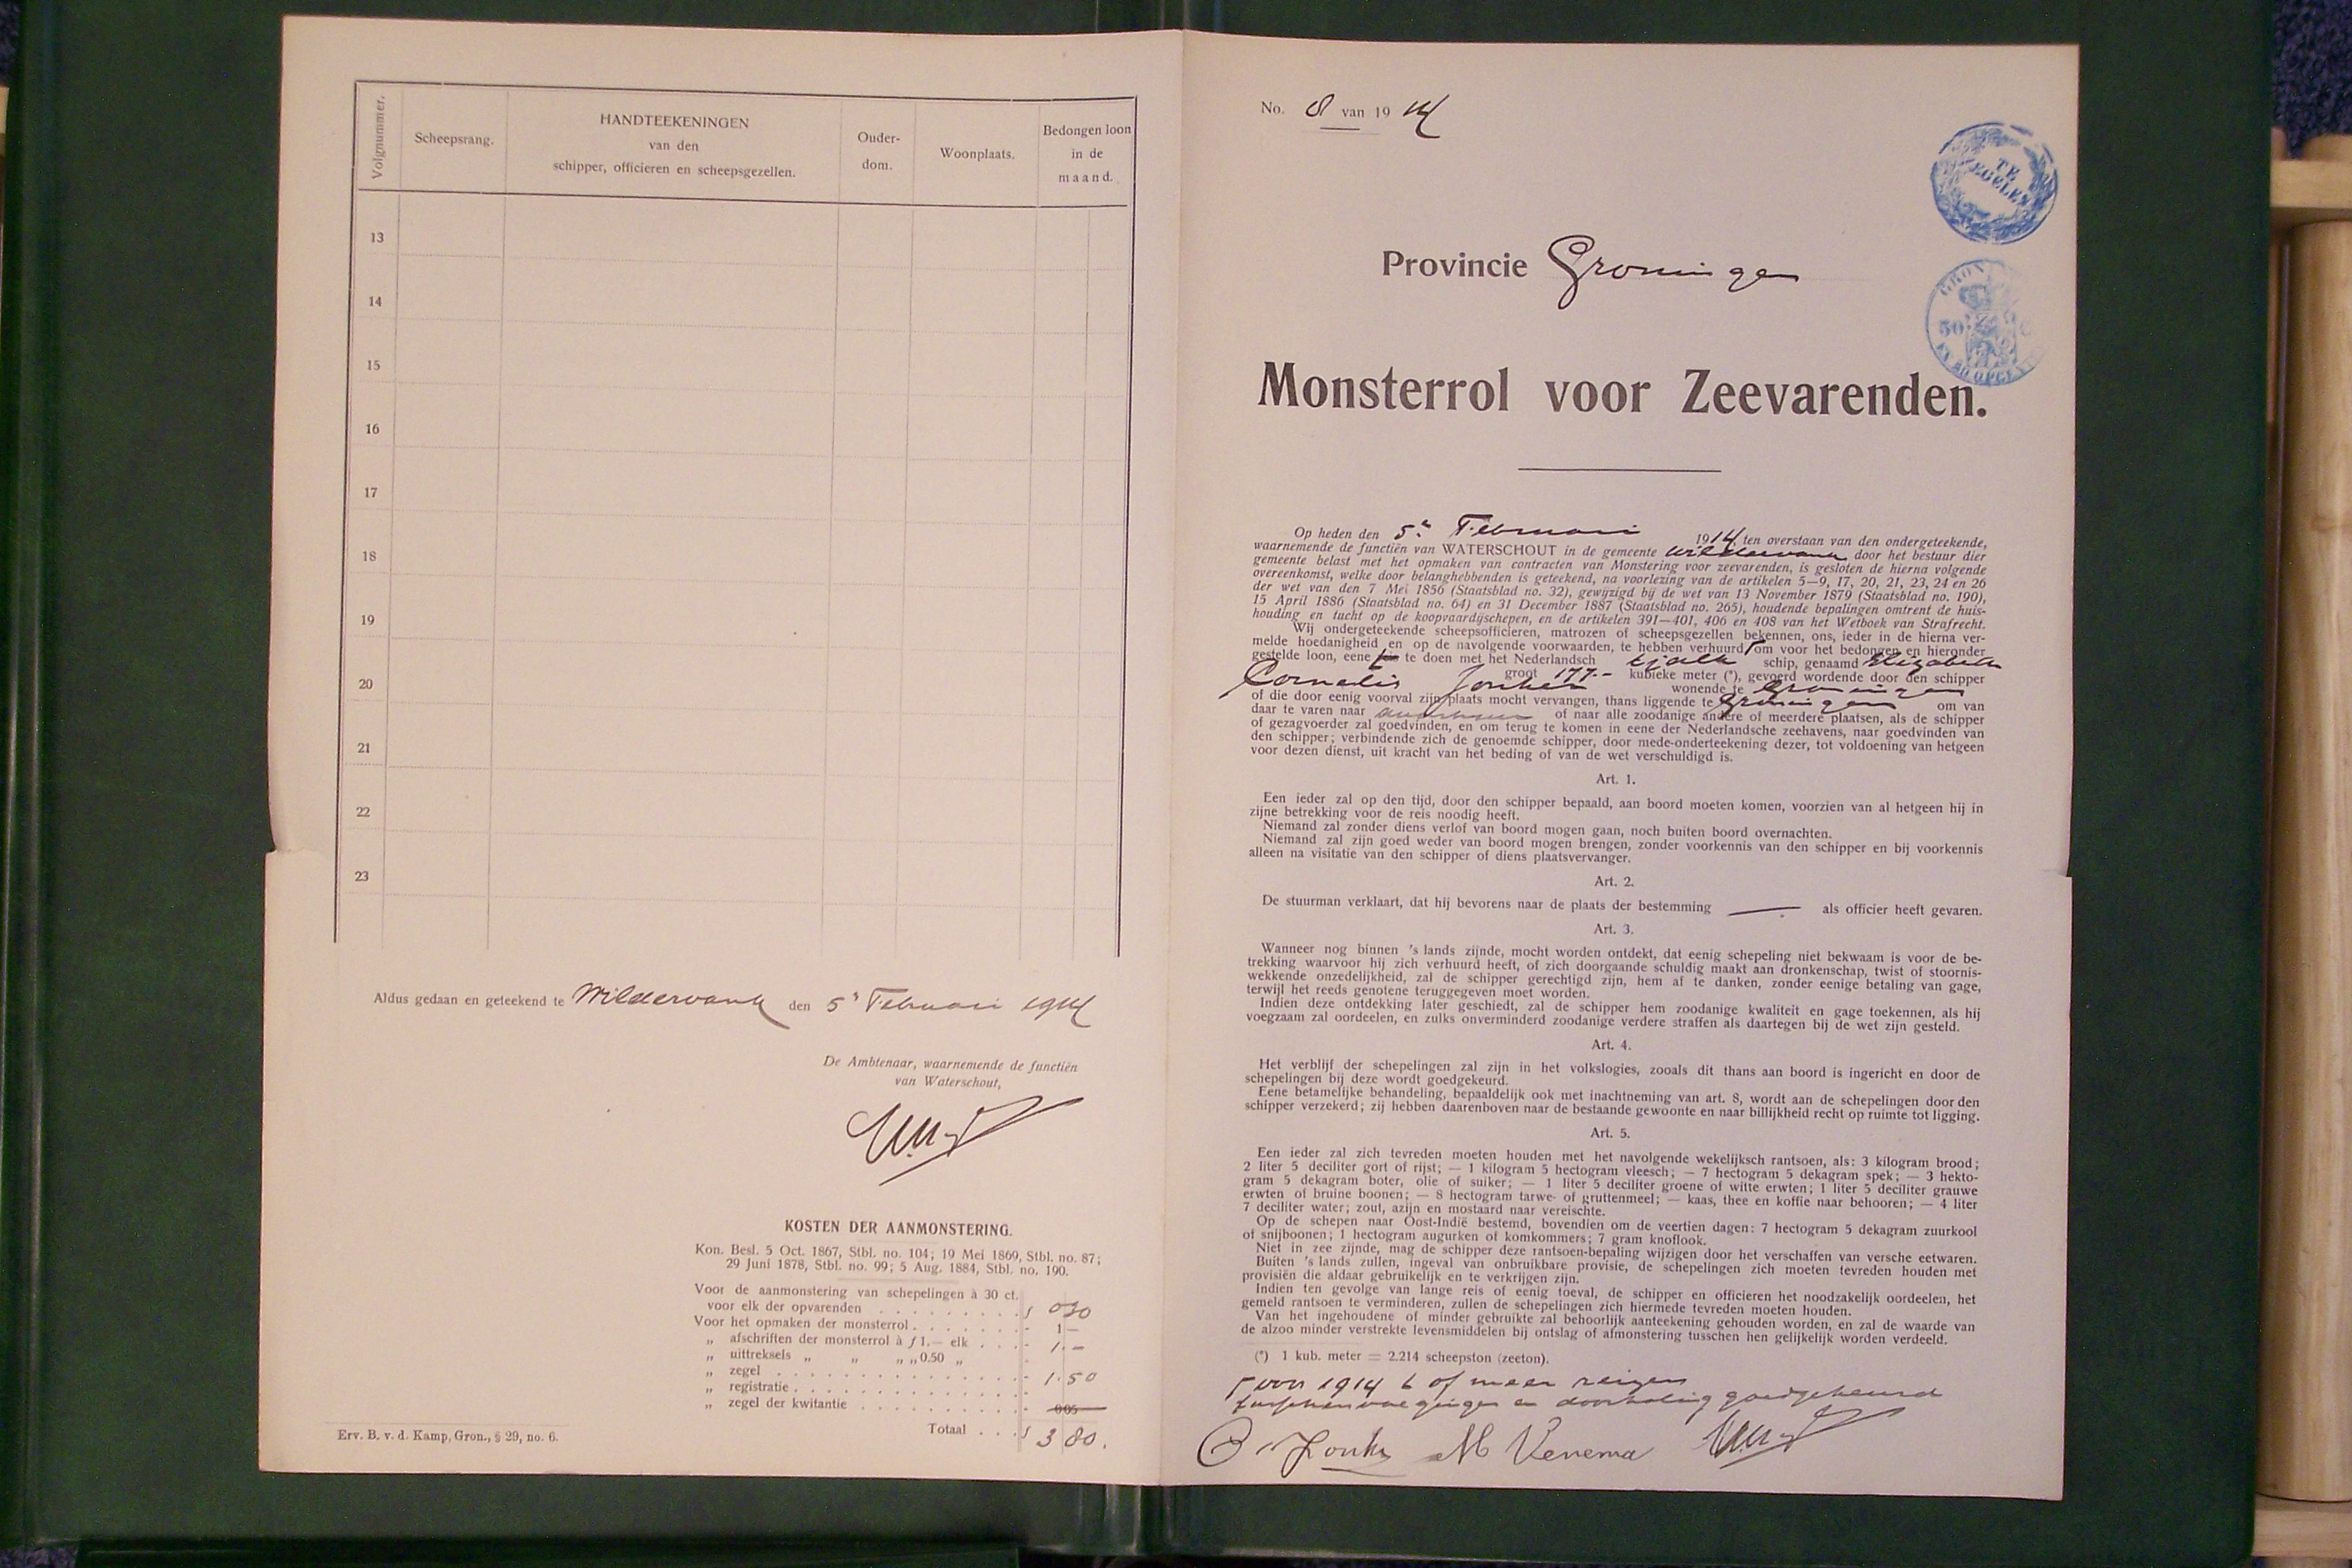 Volgnummer.
Scheepsrang.
HANDTEEKENINGEN
van den
schipper, officieren en scheepsgezellen.
Ouder-
dom.
Woonplaats.
Bedongen loon
in de
maand.
13
14
15
16
17
18
19
20
21
22
23
Aldus gedaan en geteekend te Wildervank den 5 Februari 1914
De Ambtenaar, waarnemende de functiën
van Waterschout,
KOSTEN DER AANMONSTERING.
Kon. Besl. 5 Oct. 1867, Stbl. no. 104; 19 Mei 1869, Stbl. no. 87;
29 Juni 1878, Stbl. no. 99; 5 Aug. 1884, Stbl. no. 190.
Voor de aanmonstering van schepelingen à 30 ct.
voor elk der opvarenden . . . . . . . . . f 0 30
Voor het opmaken der monsterrol . . . . . . . - 1 –
„ afschriften der monsterrol à ƒ 1.— elk . . . - 1. –
„ uittreksels „ „ „ „ 0.50 „
„ zegel . . . . . . . . . . . . . . - 1.50
„ registratie . . . . . . . . . . . . . -
„ zegel der kwitantie . . . . . . . . . . - 005
Totaal . . . f 3 80.
Erv. B. v. d. Kamp, Gron., § 29, no. 6.
No. 8 van 19 14
TE
ZEGELEN
GRON
50 C
Provincie Groningen
Monsterrol voor Zeevarenden.
Op heden den 5e Februari 1914, ten overstaan van den ondergeteekende,
waarnemende de functiën van WATERSCHOUT in de gemeente Wildervank door het bestuur dier
gemeente belast met het opmaken van contracten van Monstering voor zeevarenden, is gesloten de hierna volgende
overeenkomst, welke door belanghebbenden is geteekend, na voorlezing van de artikelen 5—9, 17, 20, 21, 23, 24 en 26
der wet van den 7 Mei 1856 (Staatsblad no. 32), gewijzigd bij de wet van 13 November 1879 (Staatsblad no. 190),
15 April 1886 (Staatsblad no. 64) en 31 December 1887 (Staatsblad no. 265), houdende bepalingen omtrent de huis-
houding en tucht op de koopvaardijschepen, en de artikelen 391—401, 406 en 408 van het Wetboek van Strafrecht.
Wij ondergeteekende scheepsofficieren, matrozen of scheepsgezellen bekennen, ons, ieder in de hierna ver-
melde hoedanigheid en op de navolgende voorwaarden, te hebben verhuurd om voor het bedongen en hieronder
gestelde loon, eene te doen met het Nederlandsch tjalk schip, genaamd Elizabeth
groot 177.- kubieke meter (*), gevoerd wordende door den schipper
Cornelis Jonker wonende te Groningen
of die door eenig voorval zijn plaats mocht vervangen, thans liggende te Groningen om van
daar te varen naar of naar alle zoodanige andere of meerdere plaatsen, als de schipper
of gezagvoerder zal goedvinden, en om terug te komen in eene der Nederlandsche zeehavens, naar goedvinden van
den schipper; verbindende zich de genoemde schipper, door mede-onderteekening dezer, tot voldoening van hetgeen
voor dezen dienst, uit kracht van het beding of van de wet verschuldigd is.
Art. 1.
Een ieder zal op den tijd, door den schipper bepaald, aan boord moeten komen, voorzien van al hetgeen hij in
zijne betrekking voor de reis noodig heeft.
Niemand zal zonder diens verlof van boord mogen gaan, noch buiten boord overnachten.
Niemand zal zijn goed weder van boord mogen brengen, zonder voorkennis van den schipper en bij voorkennis
alleen na visitatie van den schipper of diens plaatsvervanger.
Art. 2.
De stuurman verklaart, dat hij bevorens naar de plaats der bestemming —— als officier heeft gevaren.
Art. 3.
Wanneer nog binnen 's lands zijnde, mocht worden ontdekt, dat eenig schepeling niet bekwaam is voor de be-
trekking waarvoor hij zich verhuurd heeft, of zich doorgaande schuldig maakt aan dronkenschap, twist of stoornis-
wekkende onzedelijkheid, zal de schipper gerechtigd zijn, hem af te danken, zonder eenige betaling van gage,
terwijl het reeds genotene teruggegeven moet worden.
Indien deze ontdekking later geschiedt, zal de schipper hem zoodanige kwaliteit en gage toekennen, als hij
voegzaam zal oordeelen, en zulks onverminderd zoodanige verdere straffen als daartegen bij de wet zijn gesteld.
Art. 4.
Het verblijf der schepelingen zal zijn in het volkslogies, zooals dit thans aan boord is ingericht en door de
schepelingen bij deze wordt goedgekeurd.
Eene betamelijke behandeling, bepaaldelijk ook met inachtneming van art. 8, wordt aan de schepelingen door den
schipper verzekerd; zij hebben daarenboven naar de bestaande gewoonte en naar billijkheid recht op ruimte tot ligging.
Art. 5.
Een ieder zal zich tevreden moeten houden met het navolgende wekelijksch rantsoen, als: 3 kilogram brood;
2 liter 5 deciliter gort of rijst; — 1 kilogram 5 hectogram vleesch; — 7 hectogram 5 dekagram spek; — 3 hekto-
gram 5 dekagram boter, olie of suiker; — 1 liter 5 deciliter groene of witte erwten; 1 liter 5 deciliter grauwe
erwten of bruine boonen; — 8 hectogram tarwe- of gruttenmeel; — kaas, thee en koffie naar behooren; — 4 liter
7 deciliter water; zout, azijn en mostaard naar vereischte.
Op de schepen naar Oost-Indië bestemd, bovendien om de veertien dagen: 7 hectogram 5 dekagram zuurkool
of snijboonen; 1 hectogram augurken of komkommers; 7 gram knoflook.
Niet in zee zijnde, mag de schipper deze rantsoen-bepaling wijzigen door het verschaffen van versche eetwaren.
Buiten 's lands zullen, ingeval van onbruikbare provisie, de schepelingen zich moeten tevreden houden met
provisiën die aldaar gebruikelijk en te verkrijgen zijn.
Indien ten gevolge van lange reis of eenig toeval, de schipper en officieren het noodzakelijk oordeelen, het
gemeld rantsoen te verminderen, zullen de schepelingen zich hiermede tevreden moeten houden.
Van het ingehoudene of minder gebruikte zal behoorlijk aanteekening gehouden worden, en zal de waarde van
de alzoo minder verstrekte levensmiddelen bij ontslag of afmonstering tusschen hen gelijkelijk worden verdeeld.
(*) 1 kub. meter = 2.214 scheepston (zeeton).
voor 1914 6 of meer reizen
tusschenvoegingen en doorhaling goedgekeurd
C Jonker M Venema